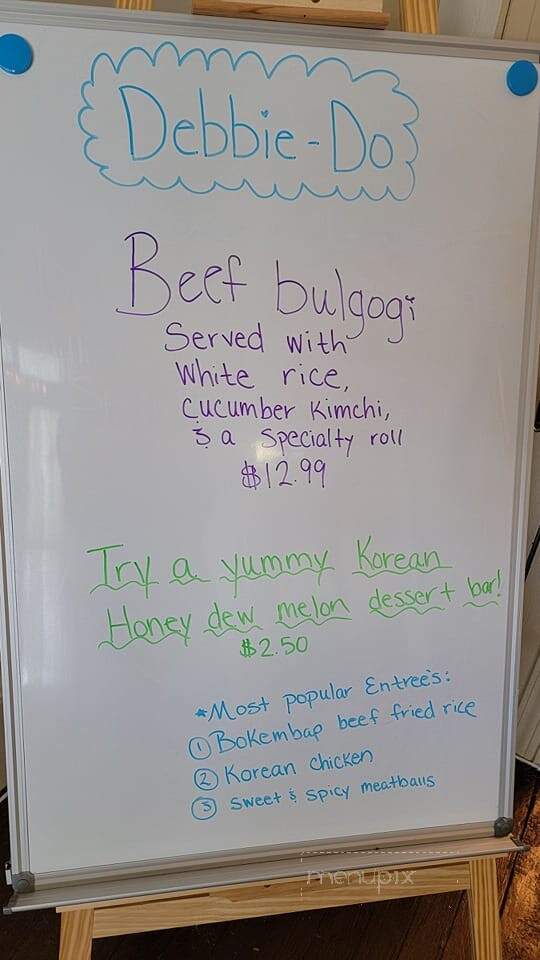 Debbie-Do
Beef bulgogi
Served with
White rice,
cucumber Kimchi,
& a Specialty roll
$12.99
Try a yummy Korean
Honey dew melon dessert bar!
$2.50
*Most popular Entree's:
① Bokembap beef fried rice
② Korean chicken
③ Sweet & Spicy meatballs
menupix